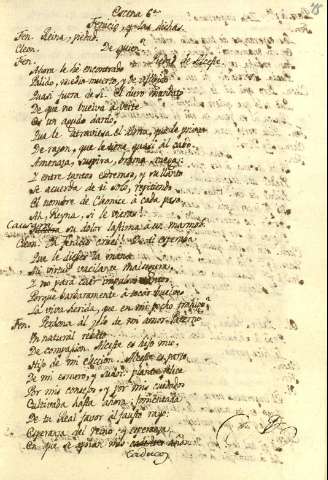 Escena 6ª
Fenicio, y los dichas.
Fen. Reina, piedad.
Cleon. De quien
Fen. de Alceste.
Ahora le hé encontrado
Palido, medio muerto, y de
Quasi fuera de si. El duro mandato
De que no buelva á verte
Es un agudo dardo,
Que le atraviesa el Alma, que le priva
De razon, que le tiene quasi al cabo.
Amenaza, suspira, brama, ruega:
Y entre tantos extremos, y su llanto
Se acuerda de ti solo, repitiendo
El nombre de Cleonice á cada paso.
Ah, Reyna, si le vieras!
su dolor lastima á un marmol.
Cleon. Ah Fenicio cruel! De ti esperaba
Que le diese la mano
Mi virtud vacilante
Y no para caer impulso
Porque barbaramente á tocar buelves
La viva herida, que en mi pecho
Fen. Perdona al zelo de mi amor Paterno
Un natural
De compasion. Alceste es hijo mio,
Hijo de mi eleccion. Alceste es parto
De mi esmero, y sudor: planta felice
Por mis consejos y por mis cuidados
Cultivada hasta ahora, fomentada
De tu Real favor al fausto rayo.
Esperanza del reino, y esperanza
En que se apoyan mis
caducos